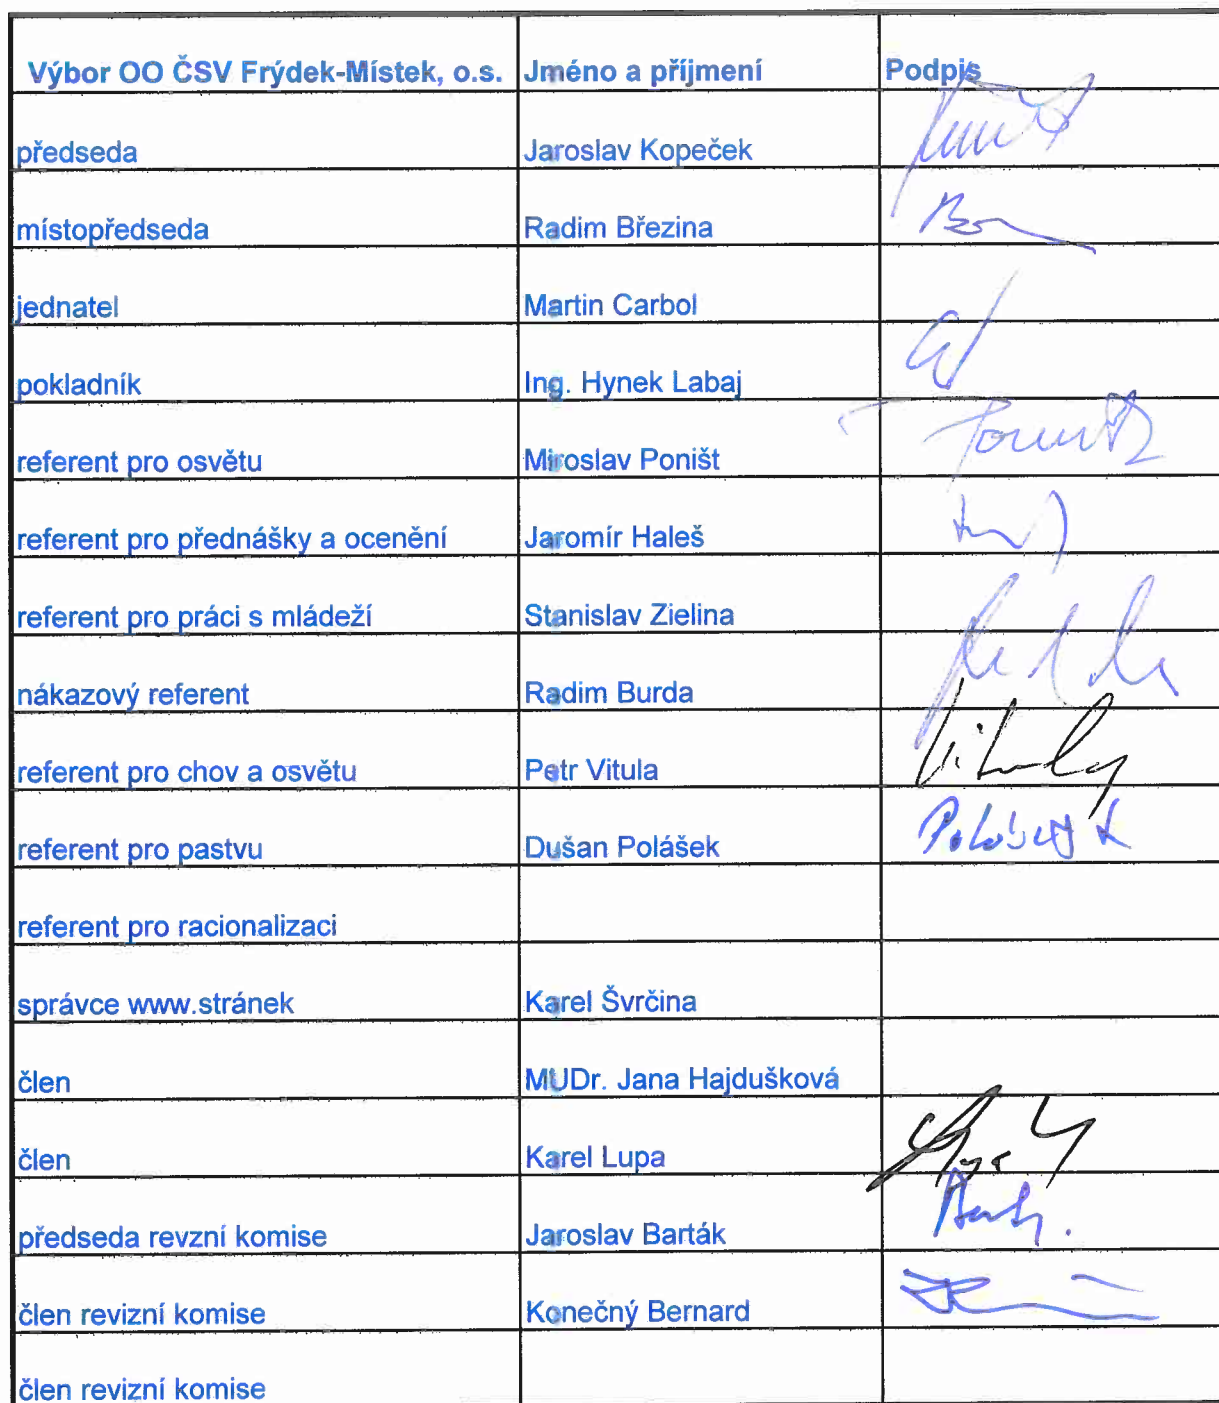 Výbor OO ČSV Frýdek-Místek, o.s. Jméno a příjmení Podpis
předseda Jaroslav Kopeček
místopředseda Radim Březina
jednatel Martin Carbol
pokladník Ing. Hynek Labaj
referent pro osvětu Miroslav Poništ
referent pro přednášky a ocenění Jaromír Haleš
referent pro práci s mládeží Stanislav Zielina
nákazový referent Radim Burda
referent pro chov a osvětu Petr Vitula
referent pro pastvu Dušan Polášek
referent pro racionalizaci
správce www.stránek Karel Švrčina
člen MUDr. Jana Hajdušková
člen Karel Lupa
předseda revzní komise Jaroslav Barták
člen revizní komise Konečný Bernard
člen revizní komise